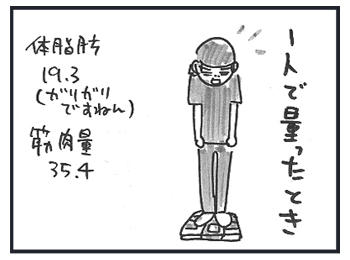 1人で量ったとき
体脂肪
19.3
(ガリガリ
ですねん)
筋肉量
35.4